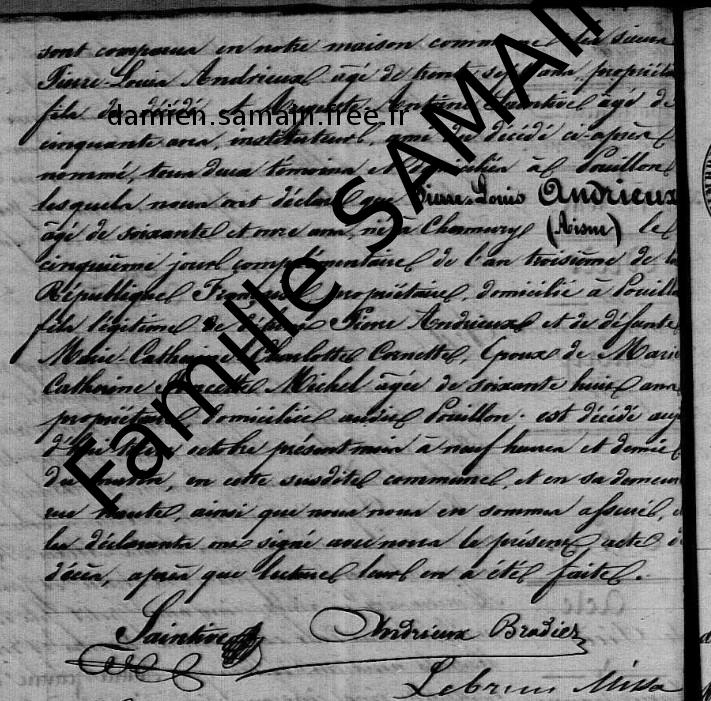 sont comparus en notre maison commune les sieurs
Pierre-Louis Andrieux âgé de trente sept ans, propriéta
fils du décédé et Auguste Saintive âgé de
cinquante ans, instituteur, ami du décédé ci-après
nommé, tous deux témoins et domiciliés à Pouillon
lesquels nous ont déclaré que Pierre-Louis Andrieux
âgé de soixante et onze ans, né à Chamery (Aisne) le
cinquième jour complémentaire de l'an troisième de la
République Française propriétaire, domicilié à Pouillon
fils légitime de défunt Pierre Andrieux et de défunte
Marie-Catherine Charlotte Cornette, Epoux de Marie
Catherine Michel âgée de soixante huit ans
propriétaire domiciliée audit Pouillon. est décédé auj
d'hui octobre présent mois à neuf heures et demie
du matin, en cette susdite commune, et en sa demeure
rue haute, ainsi que nous nous en sommes assuré, e
les déclarants ont signé avec nous le présent acte de
décès, après que lecture leur en a été faite.
Saintive Andrieux Bradier
Lebrun Missa
damien.samain.free.fr
Famille SAMAIN